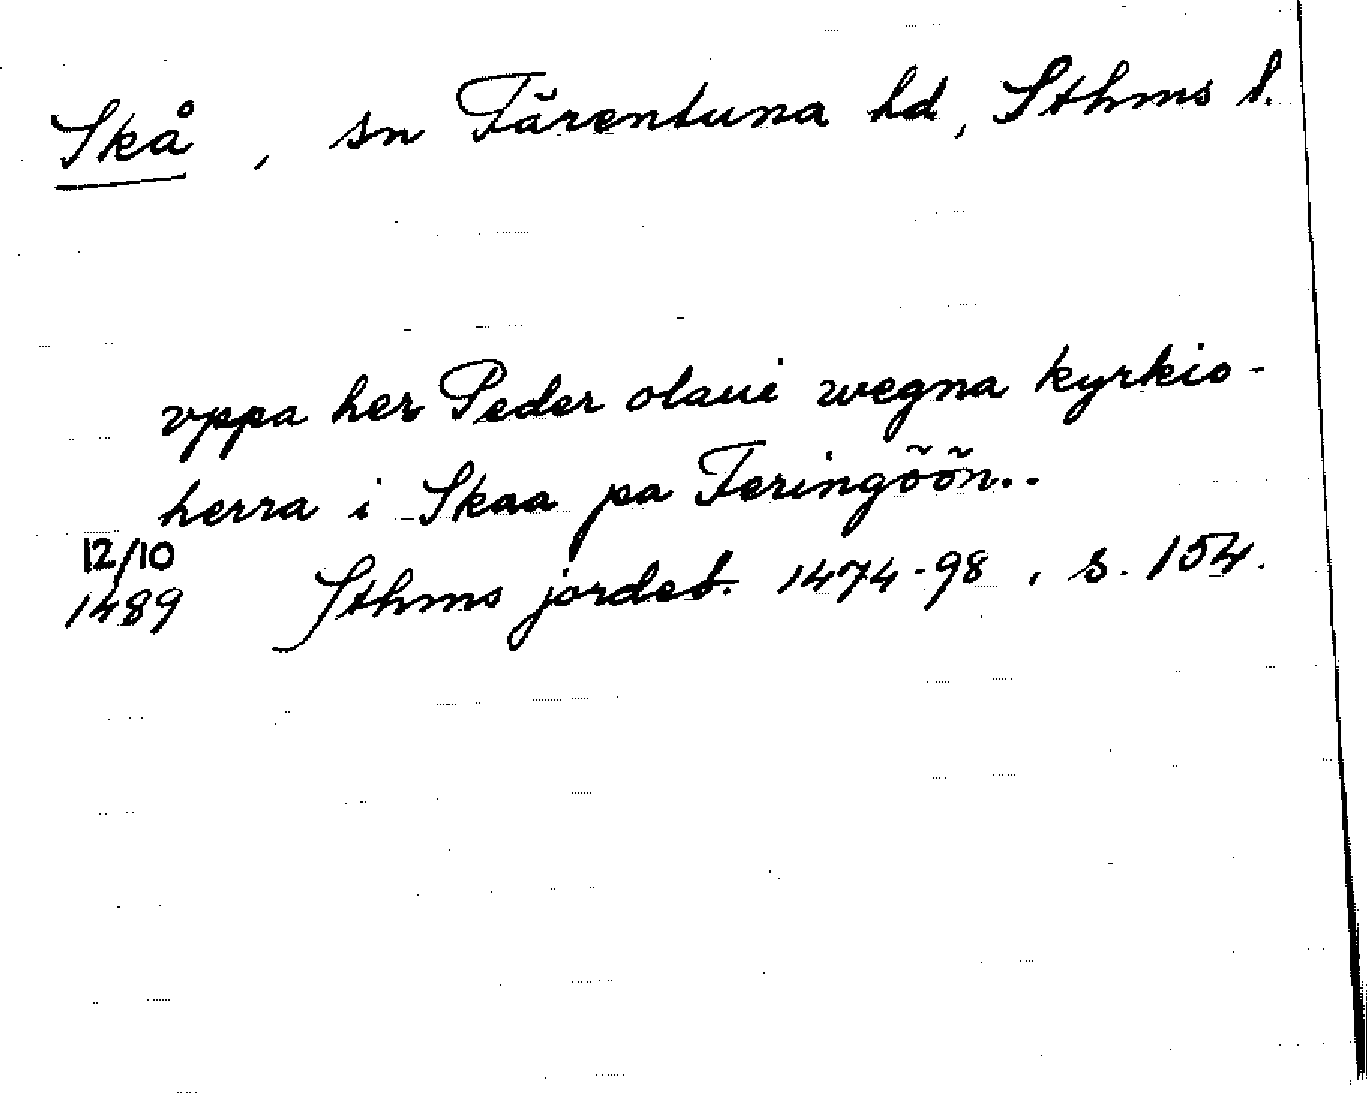 Skå, sn Färentuna hd, Sthms l.
vppa her Peder olaui wegna kyrkio-
herra i Skaa pa Feringöön..
12/10
1489 Sthms jordeb. 1474-98, s. 154.